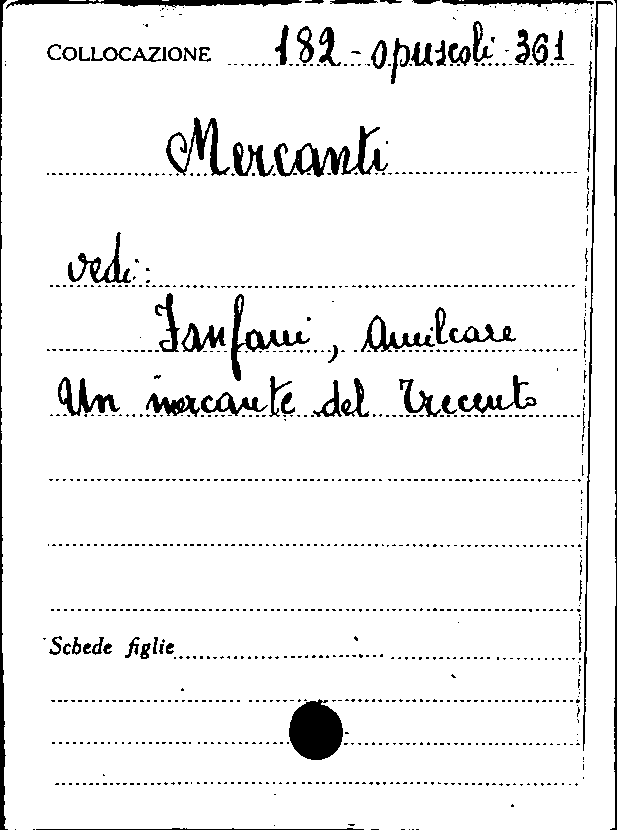 COLLOCAZIONE 182 - opuscoli - 361
Mercanti
vedi:
Fanfani, Amilcare
Un mercante del Trecento
Schede figlie